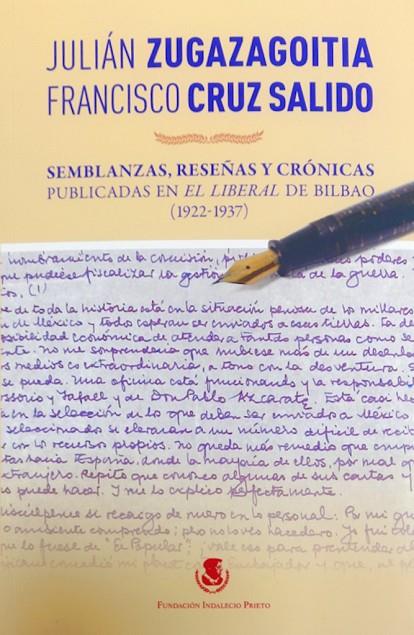 JULIÁN ZUGAZAGOITIA
FRANCISCO CRUZ SALIDO
SEMBLANZAS, RESEÑAS Y CRÓNICAS
PUBLICADAS EN EL LIBERAL DE BILBAO
(1922-1937)
nombramiento de la comisión, poderes
que pudiese fiscalizar la gestión de la guerra.
(1)
de toda la historia está en la situación penosa de 10 millares
de México y todos esperan ser enviados a esas tierras.
posibilidad económica de atender a tantas personas como se
No me sorprendería que hubiese más de un desembar
medios es extraordinaria, a tono con la desventura
se pueda. Una oficina está funcionando y la responsabi
Rafael y de Don Pablo Azcárate. Está casi hec
en la selección de lo que deban ser enviado a México
seleccionado se elevarán a un número difícil de reci
con los recursos propios. No queda más remedio que emp
hacia España, donde la mayoría de ellos, por mal q
extranjero. Repito que conozco algunas de sus cartas y
puede hacer. Y me lo explico perfectamente.
se recargo de nuevo en lo personal. Por mi q
comprendo; pero no loves hacedero. Yo fui
que lo fuese de "El Popular"; vale eso para pretender
mi Embajador y que, al
FUNDACIÓN INDALECIO PRIETO